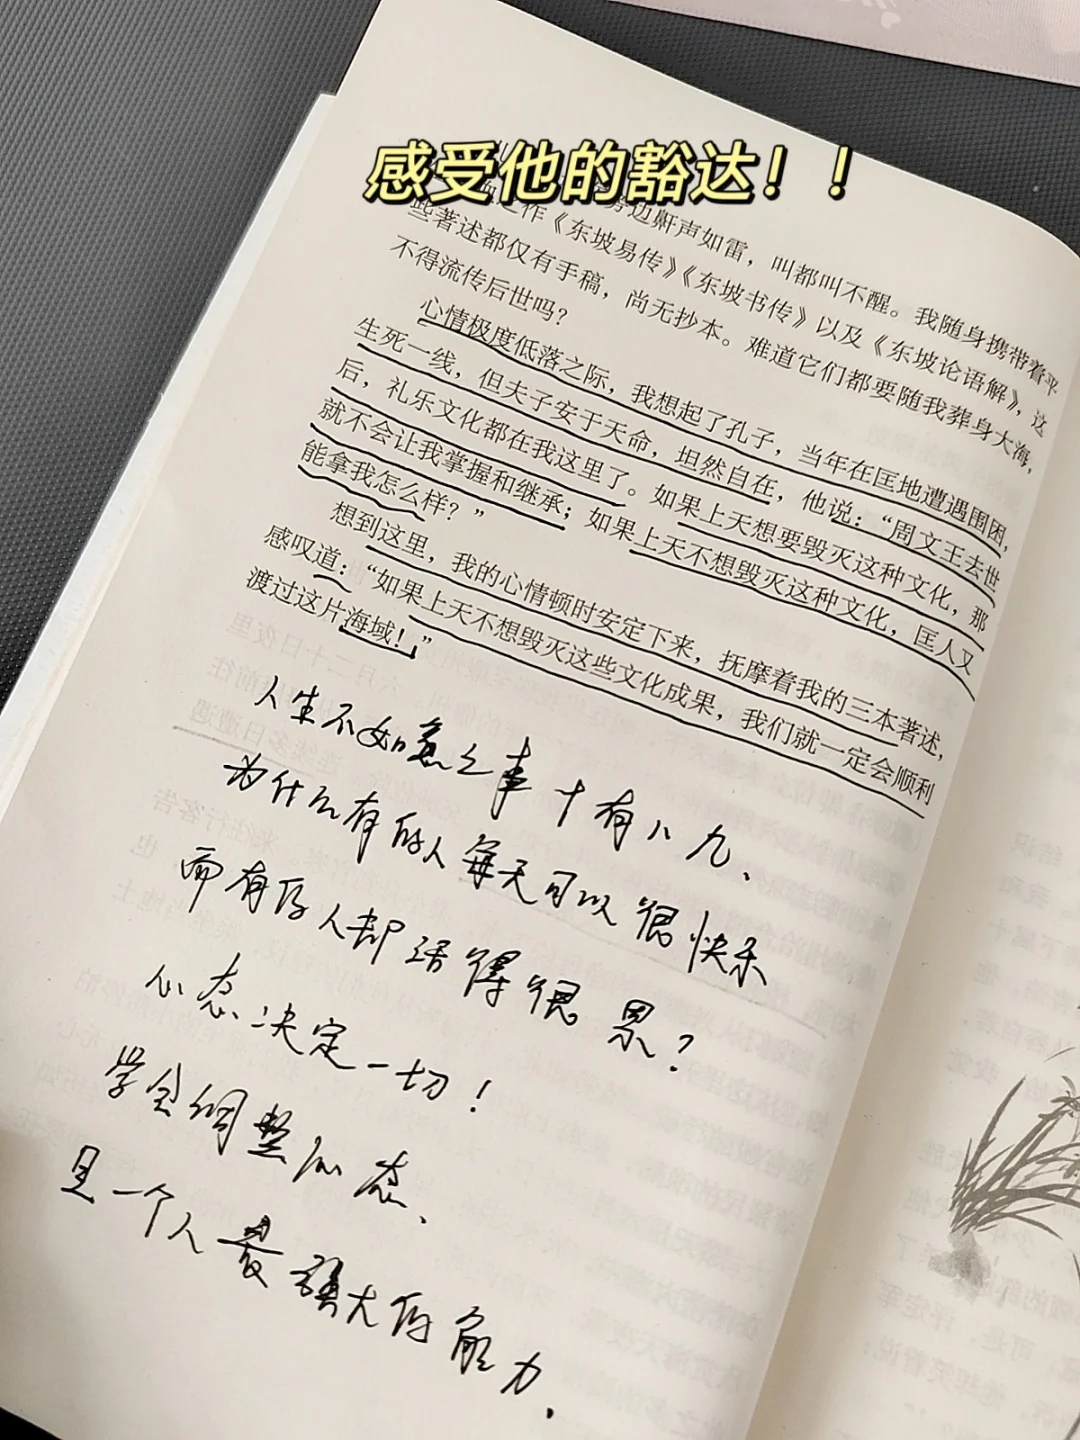 感受他的豁达！！
旁边鼾声如雷，叫都叫不醒。我随身携带着平
之作《东坡易传》《东坡书传》以及《东坡论语解》，这
些著述都仅有手稿，尚无抄本。难道它们都要随我葬身大海，
不得流传后世吗？
心情极度低落之际，我想起了孔子，当年在匡地遭遇围困，
生死一线，但夫子安于天命，坦然自在，他说：“周文王去世
后，礼乐文化都在我这里了。如果上天想要毁灭这种文化，那
就不会让我掌握和继承；如果上天不想毁灭这种文化，匡人又
能拿我怎么样？”
想到这里，我的心情顿时安定下来，抚摩着我的三本著述，
感叹道：“如果上天不想毁灭这些文化成果，我们就一定会顺利
渡过这片海域！”
人生不如意之事十有八九、
为什么有的人每天可以很快乐
而有的人却活得很累？
心态决定一切！
学会调整心态、
是一个人最强大的能力.